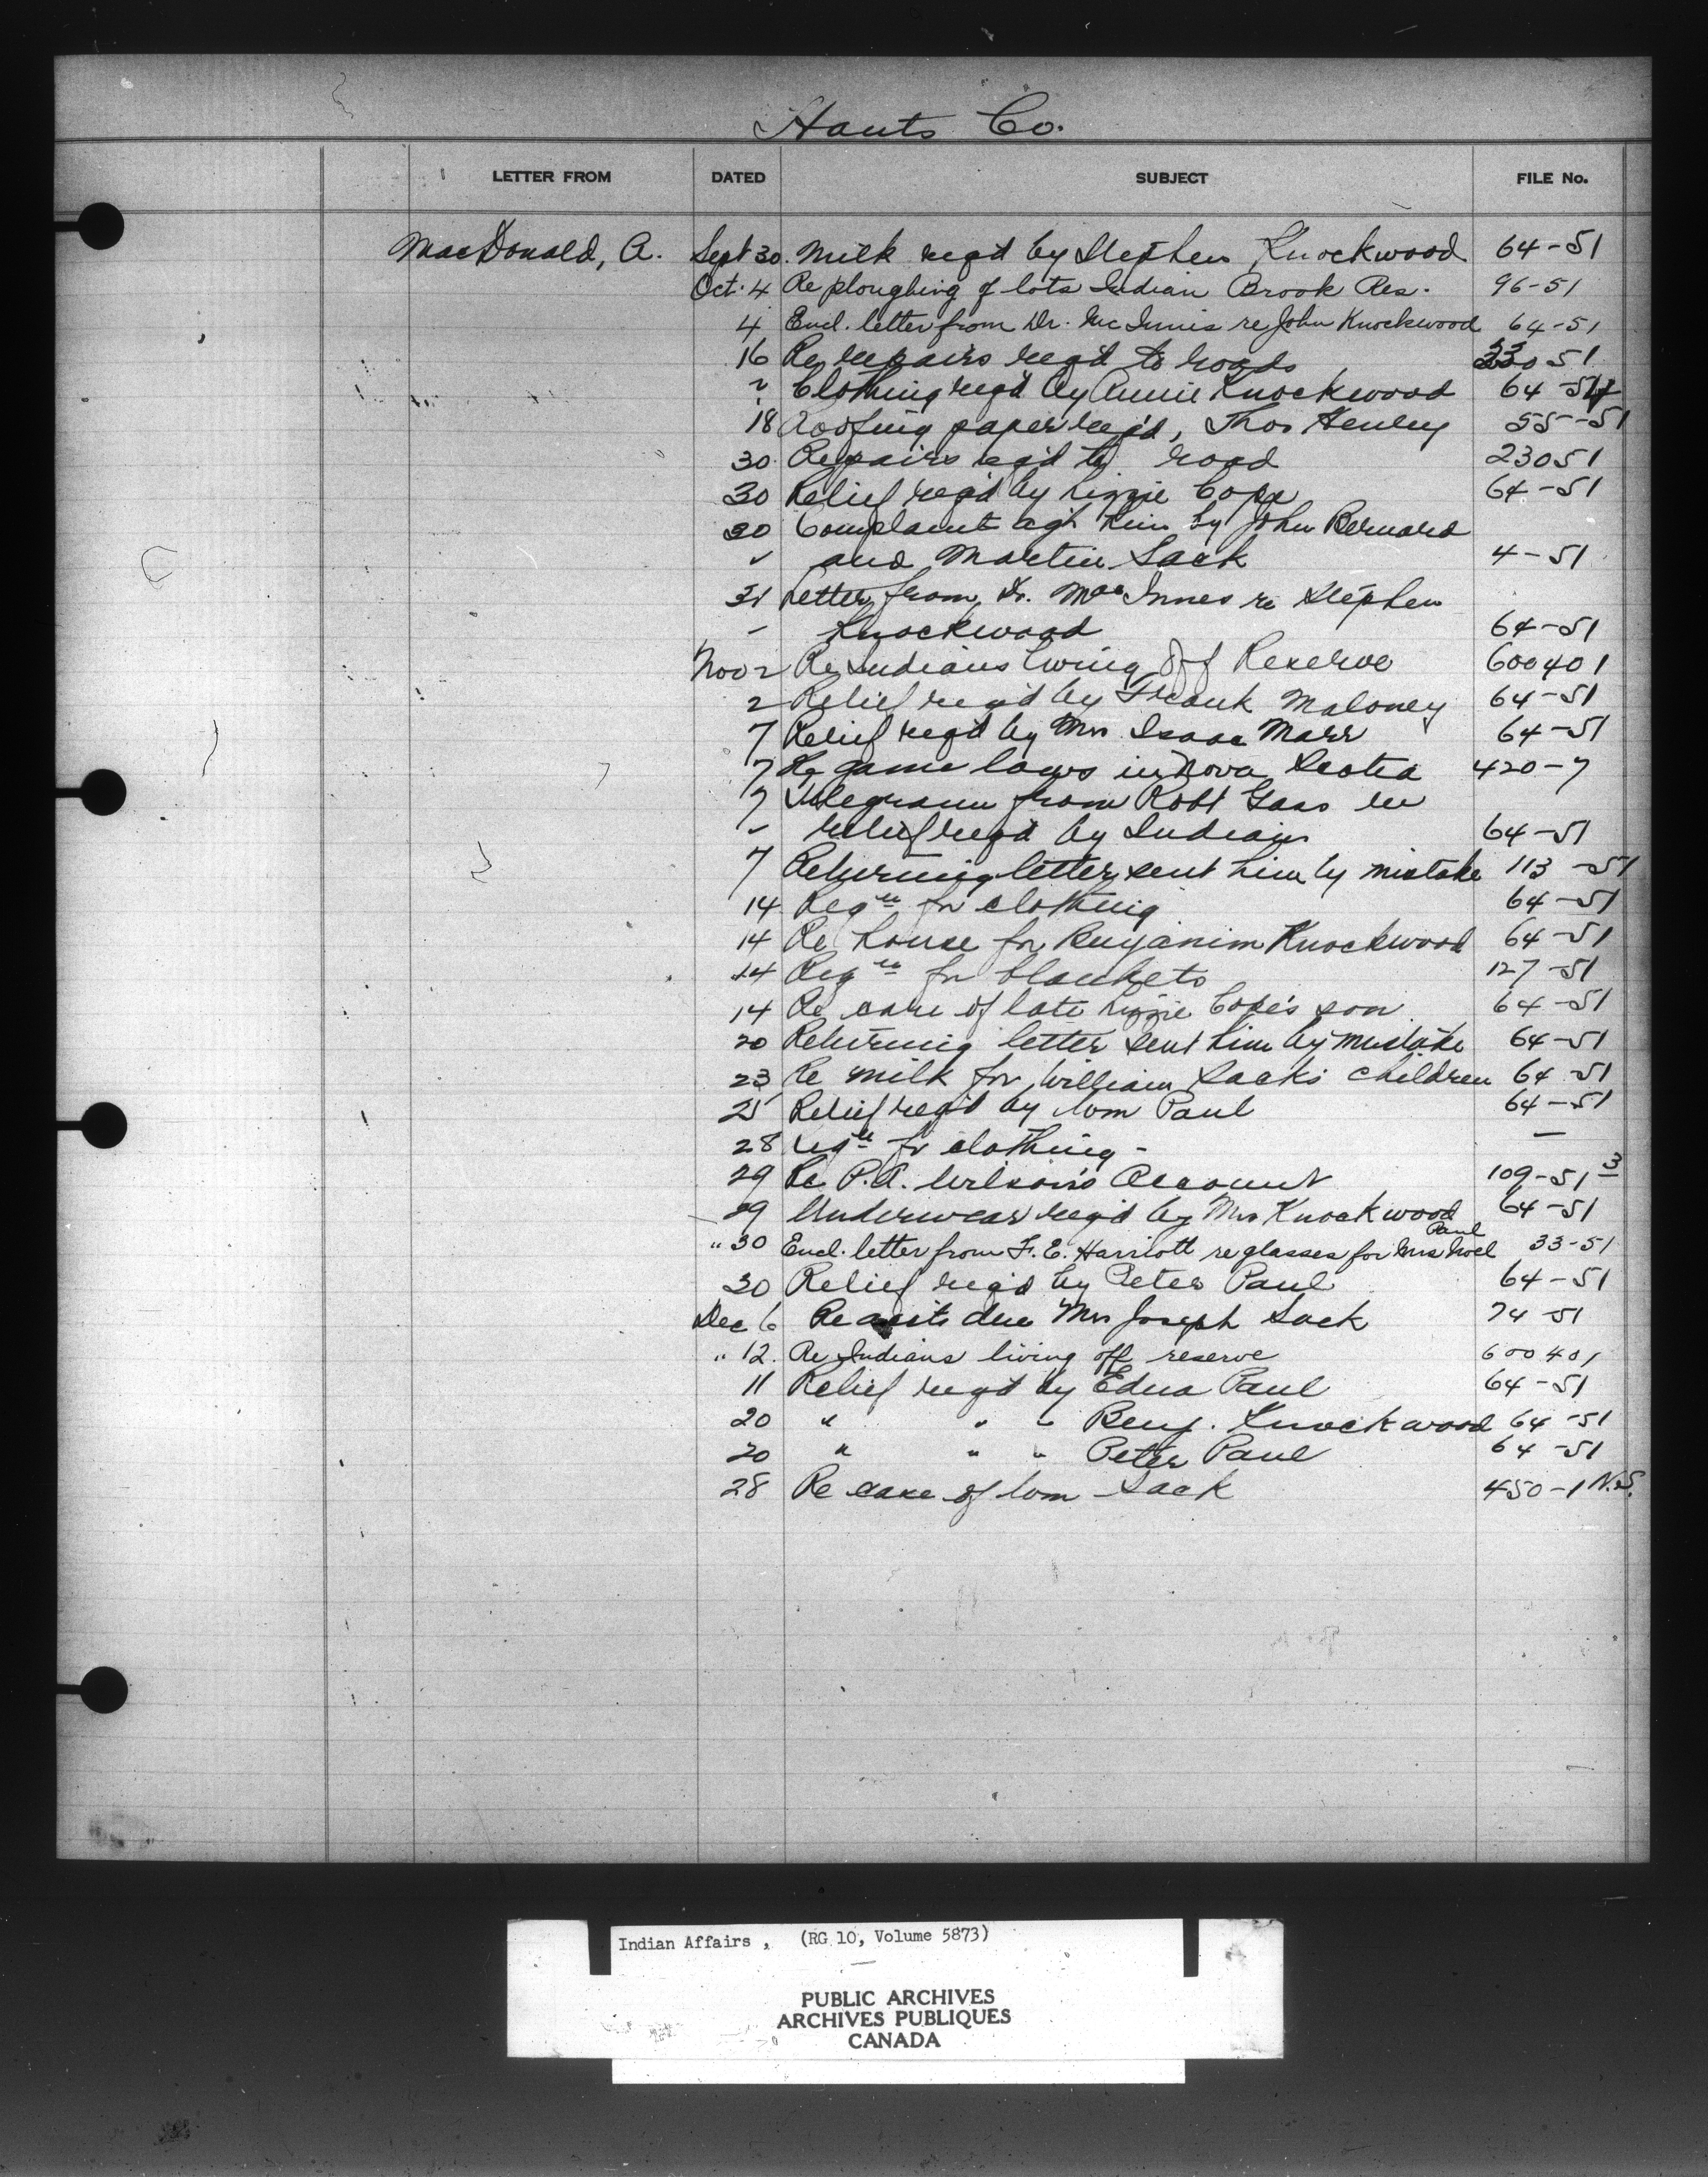 Hants Co.
LETTER FROM DATED SUBJECT FILE No.
MacDonald, A. Sept 30. Milk req'd by Stephen Knockwood 64-51
Oct. 4 Re ploughing of lots Indian Brook Res. 96-51
4 Encl. letter from Dr. McInnis re John Knockwood 64-51
16 Re repairs req'd to roads 51
" Clothing req'd by Annie Knockwood 64-51
18 Roofing paper req'd, Thos Henley 55-51
30 Repairs req'd to road 23051
30 Relief req'd by Lizzie Cope 64-51
30 Complaint ag't him by John Bernard
" and Martin Sack 4-51
31 Letter from Dr. MacInnes re Stephen
" Knockwood 64-51
Nov 2 Re Indians living Off Reserve 600401
2 Relief req'd by Frank Maloney 64-51
7 Relief req'd by Mrs Isaac Marr 64-51
7 Re game laws in Nova Scotia 420-7
7 Telegram from Robt Gass re
" relief req'd by Indians 64-51
7 Returning letter sent him by mistake 113-51
14 Reqn for clothing 64-51
14 Re house for Benjanim Knockwood 64-51
14 Reqn for blankets 127-51
14 Re care of late Lizzie Cope's son 64-51
20 Returning letter sent him by mistake 64-51
23 Re milk for William Sack's children 64-51
25 Relief req'd by Wm Paul 64-51
28 Reqn for clothing - —
29 Re P.A. Wilson's Account 109-51 3
29 Underwear req'd by Mrs Knockwood 64-51
" 30 Encl. letter from F. E. Harriott re glasses for Mrs Noel Paul 33-51
30 Relief req'd by Peter Paul 64-51
Dec 6 Re acct due Mrs Joseph Sack 74-51
" 12. Re Indians living off reserve 600401
11 Relief req'd by Edna Paul 64-51
20 " " " Benj. Knockwood 64-51
20 " " " Peter Paul 64-51
28 Re case of Wm Sack 450-1 N.S.
Indian Affairs, (RG 10, Volume 5873)
PUBLIC ARCHIVES
ARCHIVES PUBLIQUES
CANADA